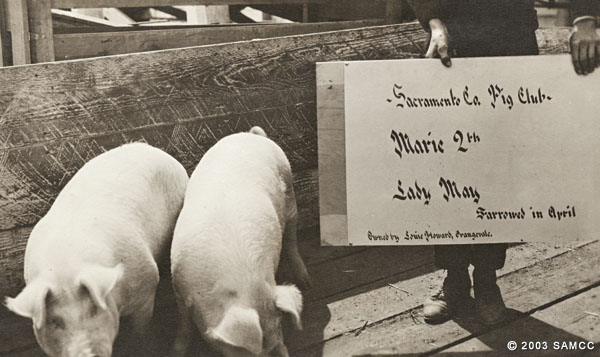 -Sacramento Ca. Pig Club-
Marie 2th
Lady May
Farrowed in April
Owned by Louie Howard, Orangevale.
© 2003 SAMCC